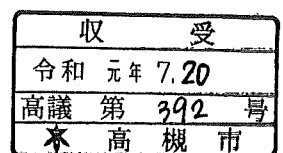 収受
令和 元年 7.20
高議 第 392 号
高槻市